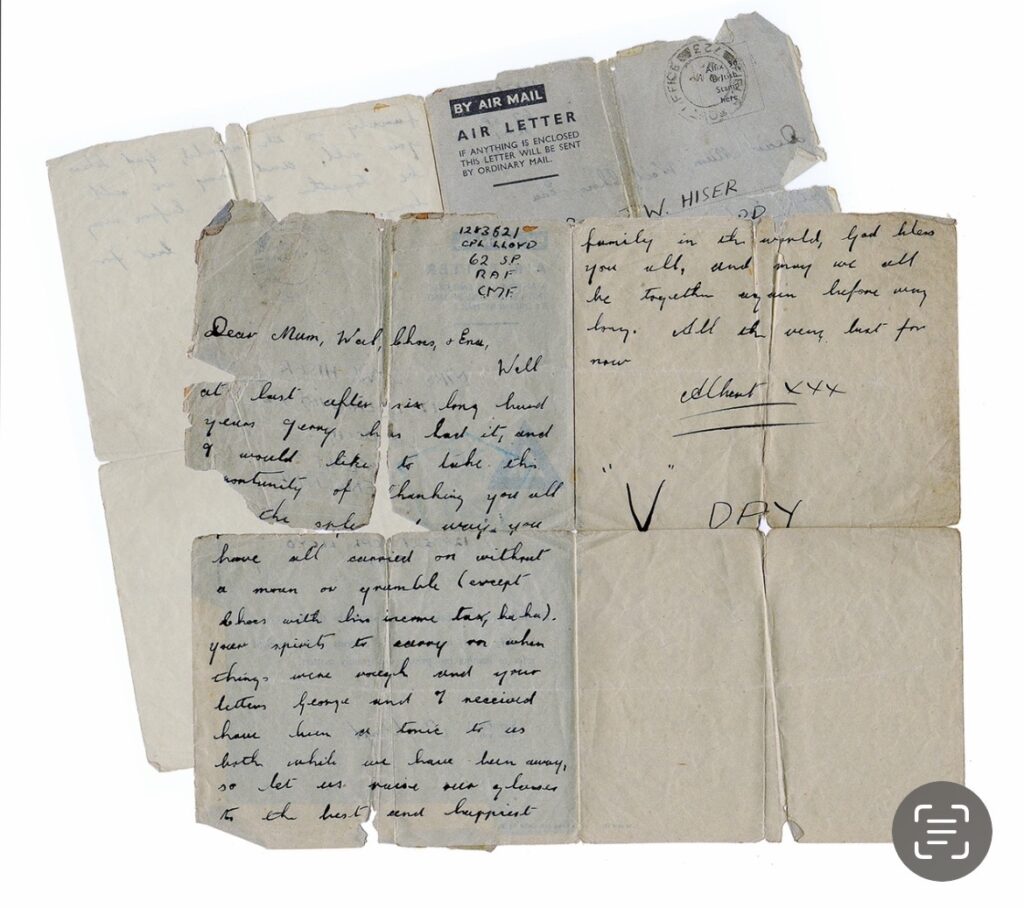 BY AIR MAIL
AIR LETTER
IF ANYTHING IS ENCLOSED
THIS LETTER WILL BE SENT
BY ORDINARY MAIL.
Affix
British
Stamp
Here
W. HISER
RD
1283621
CPL LLOYD
62 SP
RAF
CMF
Dear Mum, Wal, Chas, & Ena,
Well
at last after six long hard
years Gerry has had it, and
I would like to take this
ortunity of thanking you all
the sple way you
have all carried on without
a moan or grumble (except
Chas with his income tax, ha ha).
your spirits to carry on when
things were rough and your
letters George and I received
have been a tonic to us
both while we have been away,
so let us raise our glasses
to the best and happiest
family in the world, God bless
you all, and may we all
be together again before very
long. All the very best for
now
Albert xxx
"V" DAY